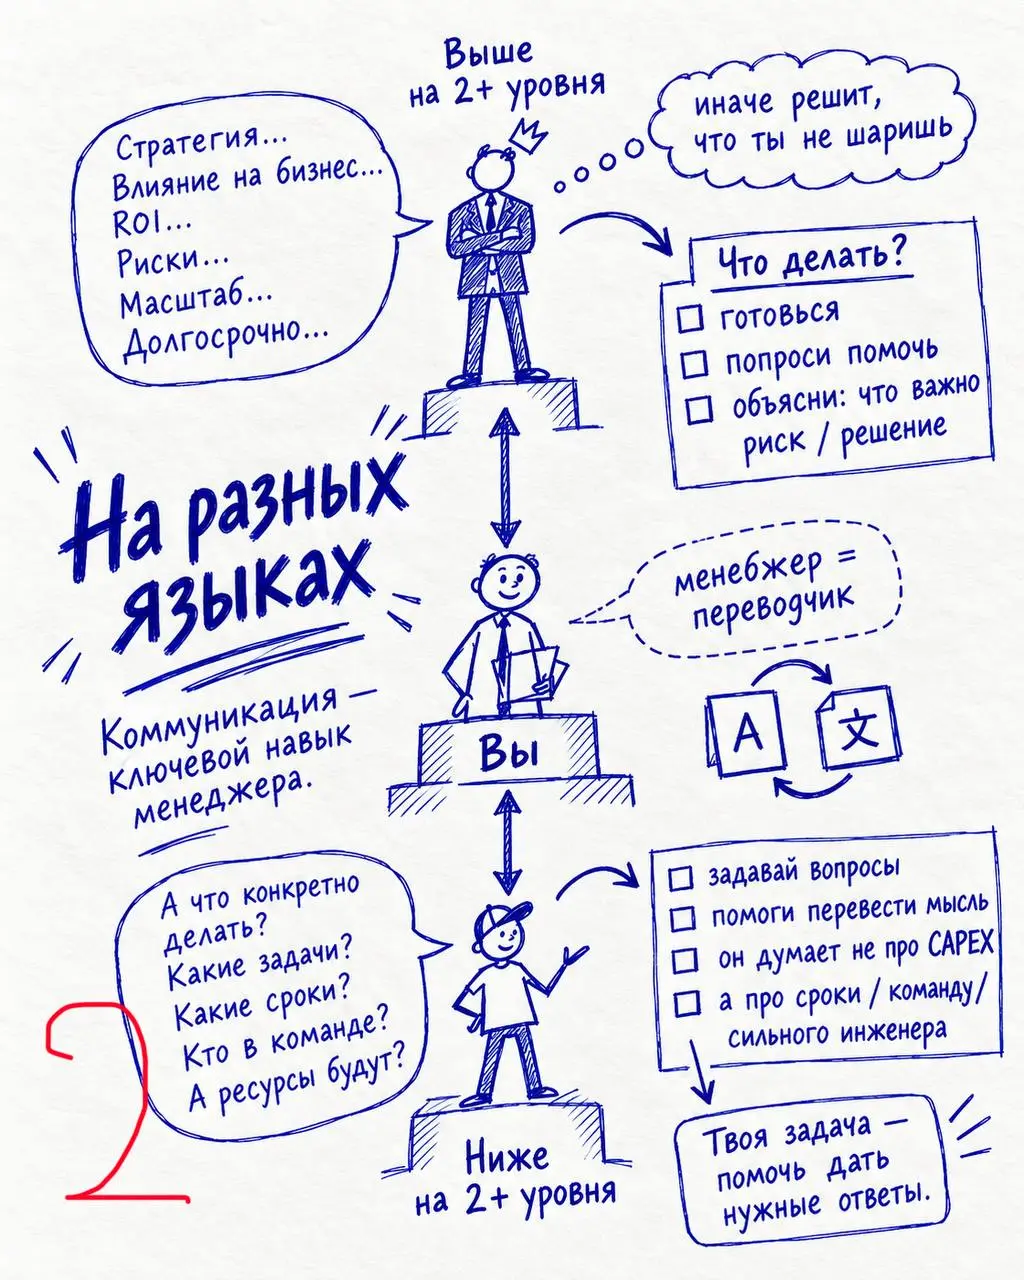 Выше
на 2+ уровня
иначе решит,
что ты не шаришь
Стратегия...
Влияние на бизнес...
ROI...
Риски...
Масштаб...
Долгосрочно...
Что делать?
готовься
попроси помочь
объясни: что важно
риск / решение
На разных
языках
Коммуникация —
ключевой навык
менеджера.
менебжер =
переводчик
A
文
Вы
А что конкретно
делать?
Какие задачи?
Какие сроки?
Кто в команде?
А ресурсы будут?
задавай вопросы
помоги перевести мысль
он думает не про CAPEX
а про сроки / команду/
сильного инженера
Твоя задача —
помочь дать
нужные ответы.
Ниже
на 2+ уровня
2